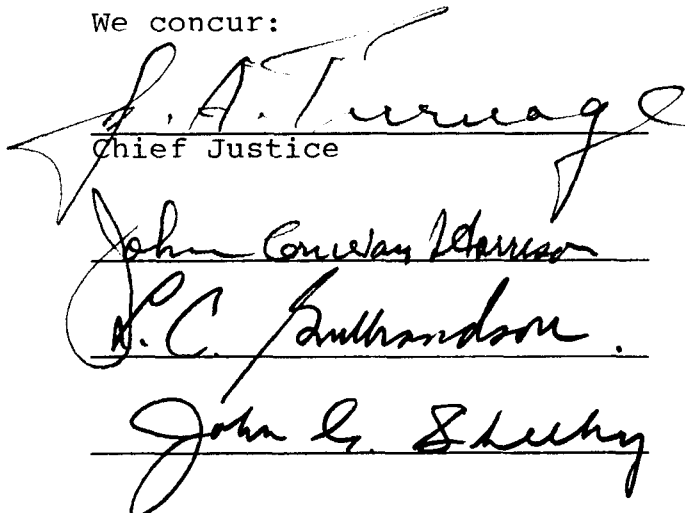 We concur:
J. A. Turnage
Chief Justice
John Conway Harrison
L. C. Gulbrandson.
John C. Sheehy